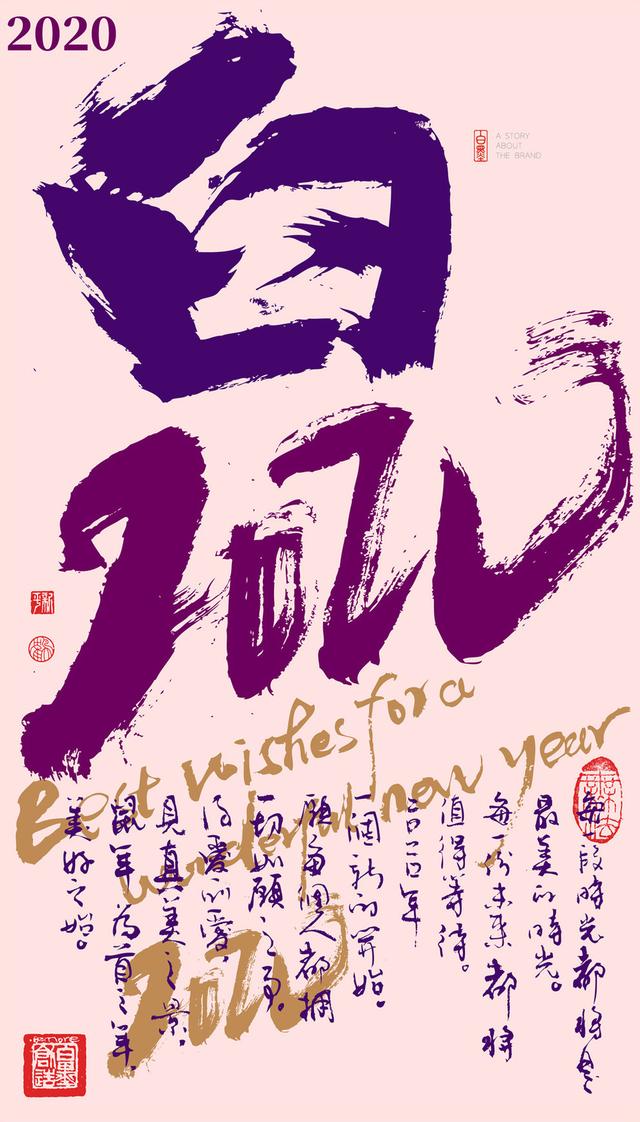 2020
鼠
白墨
A STORY
ABOUT
THE BRAND
2020
Best wishes for a
wonderful new year
2020
每一段時光都將是
最美的時光。
每一份未来都將
值得等待。
二〇二〇年
一個新的開始。
願每個人都擁
一切如願之事。
得愛所愛,
見真美之景。
鼠年為首之年
美好之始。